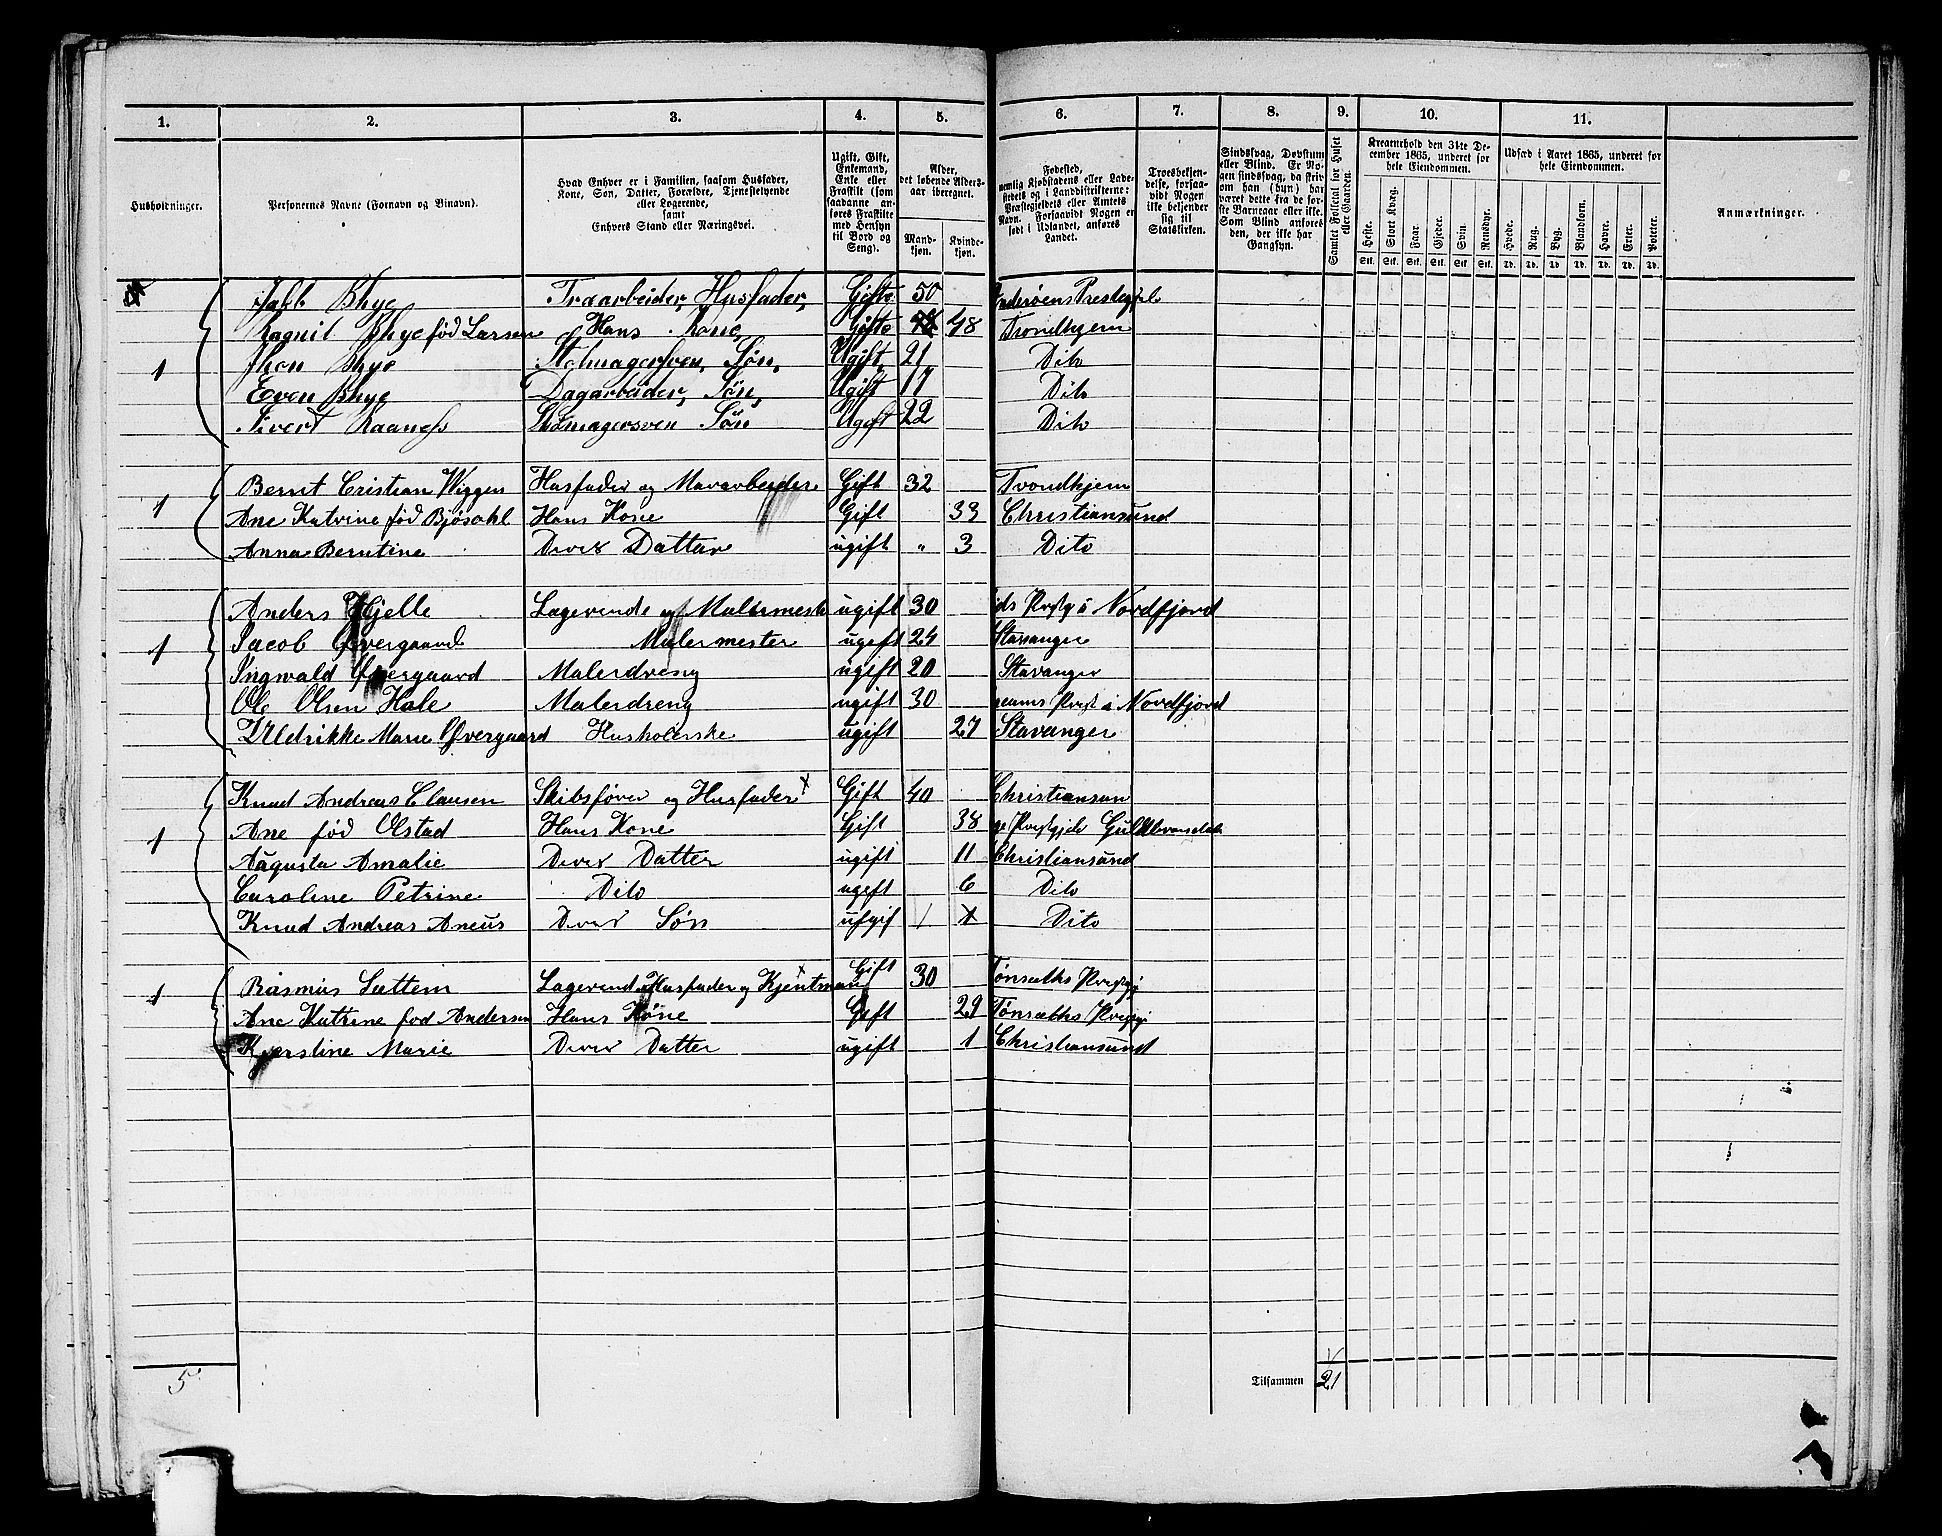 1. 2. 3. 4. 5. 6. 7. 8. 9. 10. 11.
Husholdninger.
Personernes Navne (Fornavn og Binavn).
Hvad Enhver er i Familien, saasom Husfader, Kone, Søn, Datter, Forældre, Tjenestetyende eller Logerende, samt Enhvers Stand eller Næringsvei.
Ugift, Gift, Enkemand, Enke eller Fraskilt (som saadanne anføres Fraskilte med Hensyn til Bord og Seng).
Alder, det løbende Aldersaar iberegnet.
Mandkjøn. Kvindekjøn.
Fødested, nemlig Kjøbstadens eller Ladestedets og i Landdistrikterne: Præstegjeldets eller Amtets Navn. Forsaavidt Nogen er født i Udlandet, anføres Landet.
Troesbekjendelse, forsaavidt Nogen ikke bekjender sig til Statskirken.
Sindssvag, Døvstum eller Blind. Er Nogen sindssvag, da skrives om han (hun) har været dette fra de første Barneaar eller ikke. Som Blind anføres den, der ikke har Gangsyn.
Samlet Folketal for Huset eller Gaarden.
Kreaturhold den 31te December 1865, underet for hele Eiendommen.
Heste. Stort Kvæg. Faar. Gjeder. Svin. Rensdyr.
Stk. Stk. Stk. Stk. Stk. Stk.
Udsæd i Aaret 1865, underet for hele Eiendommen.
Hvede. Rug. Byg. Blandkorn. Havre. Erter. Poteter.
Td. Td. Td. Td. Td. Td. Td.
Anmærkninger.
Jakb Bhye Træarbeider, Husfader, Gifte 50 Inderøens Prestegjel
Ragnil Bhye fød Larsen Hans Kone, Gifte 48 Trondhjem
1 Jhon Bhye Stolmagersven, Søn, Ugift, 21 Dito
Even Bhye Dagarbeider, Søn, Ugift 17 Dito
Sivert Raaness Skomagersven Søn Ugift 22 Dito
1 Bernt Cristian Wiggen Husfader og Murarbeider Gift 32 Trondhjem
Ane Katrine fød Bjøsahl Hans Kone Gift 33 Christiansund
Anna Berntine Deres Datter ugift " 3 Dito
Anders Hjelle Lagerende og Malermester ugift 30 ids Prstg i Nordfjord
1 Jacob Øvergaard Malermester ugift 24 Stavanger
Ingwald Øvergaard Malerdreng ugift 20 Stavanger
Ole Olsen Hole Malerdreng ugift 30 i Nordfjord
Uldrikke Marie Øvergaard Husholerske ugift 27 Stavanger
Knud Andreas Clausen Skibsfører og Husfader x Gift 40 Christiansun
1 Ane fød Olstad Hans Kone Gift 38 ge Prestgjeld Gulbbransdale
Augusta Amalie Deres Datter ugift 11 Christiansund
Caroline Petrine Dito ugift 6 Dito
Knud Andreas Aneus Deres Søn ufgif 1 Dito
1 Rasmus Sættem Lagerend Husfader og Kjentman x Gift 30 Tønsæths Prestgj
Ane Katrine fød Andersen Hans Kone Gift 29 Tønsæths Prestgj
Kjerstine Marie Deres Datter ugift 1 Christiansund
5 Tilsammen 21